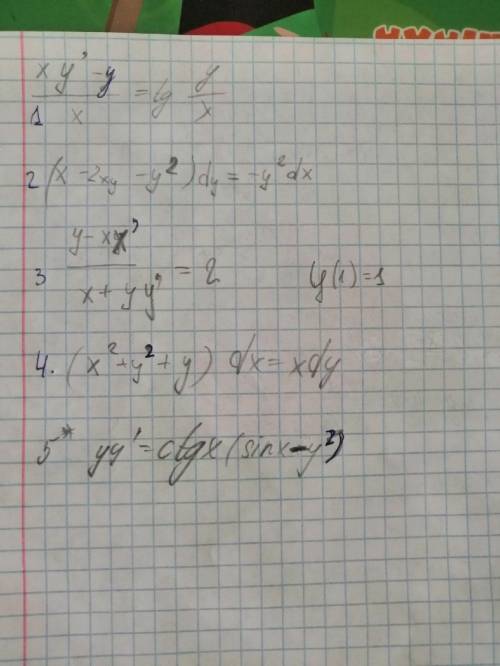 1 (xy' - y)/x = tg y/x
2 (x - 2xy - y²) dy = -y² dx
3 (y - xy')/(x + yy') = 2 y(1) = 1
4. (x² + y² + y) dx = x dy
5* yy' = ctgx (sinx - y²)